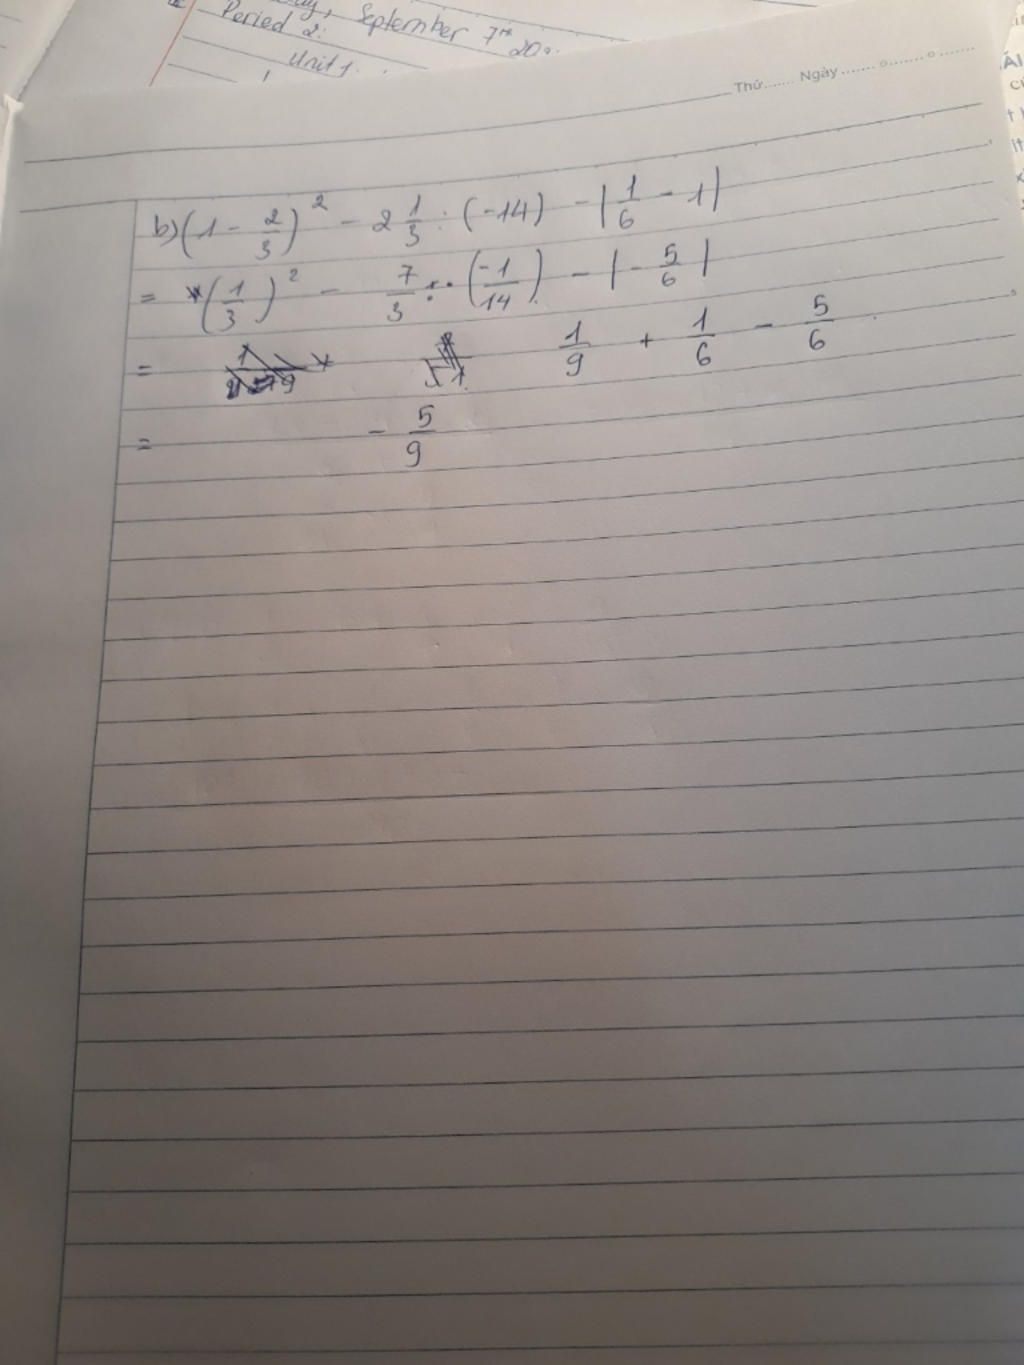 Period 2: September 7th 20
Unit 1.
Thứ....... Ngày....... o....... o.......
b) (1 - 2/3)^2 - 2 1/3 : (-14) - |1/6 - 1|
= (1/3)^2 - 7/3 . (-1/14) - |-5/6|
= 1/9 + 1/6 - 5/6
= -5/9